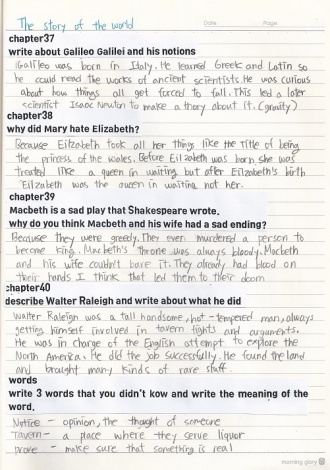 The story of the world
Date. Page.
chapter37
write about Galileo Galilei and his notions
Galileo was born in Italy. He learned Greek and Latin so
he could read the works of ancient scientists. He was curious
about how things all get forced to fall. This led a later
scientist Isaac Newton to make a thory about it. (gravity)
chapter38
why did Mary hate Elizabeth?
Because Eilzabeth took all her things like the title of being
the princess of the wales. Before Eilzabeth was born she was
treated like a queen in waiting but after Elizabeth's birth
Eilzabeth was the queen in waiting not her.
chapter39
Macbeth is a sad play that Shakespeare wrote.
why do you think Macbeth and his wife had a sad ending?
Because they were greedy. They even murdered a person to
become king. Macbeth's throne was always bloody. Macbeth
and his wife couldn't bare it. They already had blood on
their hands I think that led them to their doom
chapter40
describe Walter Raleigh and write about what he did
Walter Raleigh was a tall handsome, hot-tempered man, always
getting himself involved in tavern fights and arguments.
He was in charge of the English attempt to explore the
North America. He did the job successfully. He found the land
and brought many kinds of rare stuff.
words
write 3 words that you didn't kow and write the meaning of the
word.
Notice - opinion, the thought of someone
Tavern - a place where they serve liquor
prove - make sure that something is real
morning glory